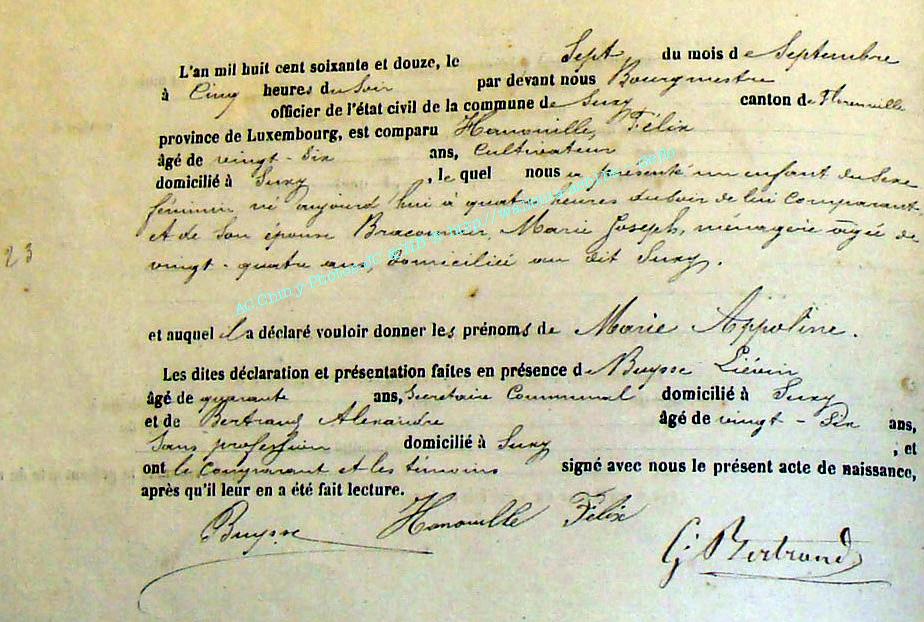 L'an mil huit cent soixante et douze, le Sept du mois de Septembre
à Cinq heures du Soir par devant nous Bourgmestre
officier de l'état civil de la commune de Suxy canton de Florenville
province de Luxembourg, est comparu Hanouille, Félix
âgé de vingt-Six ans, Cultivateur
domicilié à Suxy, le quel nous a présenté un enfant du Sexe
féminin, né aujourd'hui à quatre heures du soir de lui Comparant
et de Son épouse Braconnier, Marie Joseph, ménagère âgée de
vingt-quatre ans, domiciliée au dit Suxy.
23
et auquel il a déclaré vouloir donner les prénoms de Marie Appoline.
Les dites déclaration et présentation faites en présence de Buysse Liévin
âgé de quarante ans, Secrétaire Communal domicilié à Suxy
et de Bertrand Alexandre âgé de vingt-Six ans,
Sans profession domicilié à Suxy, et
ont le Comparant et les témoins signé avec nous le présent acte de naissance,
après qu'il leur en a été fait lecture.
Buysse Hanouille Félix
G Bertrand